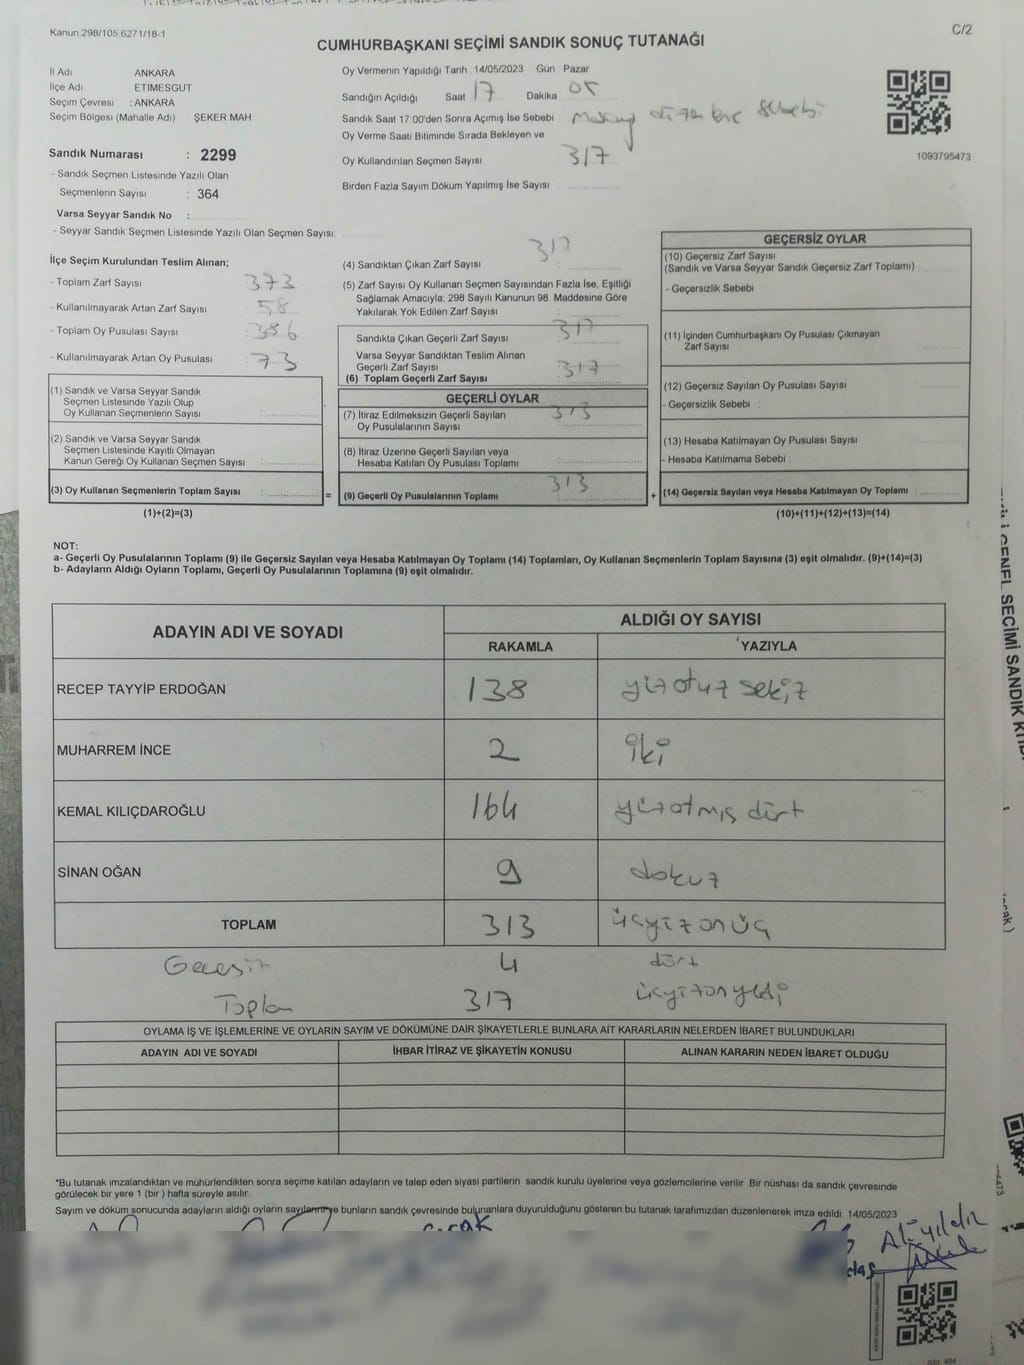 Kanun.298/105,6271/18-1
C/2
CUMHURBAŞKANI SEÇİMİ SANDIK SONUÇ TUTANAĞI
İl Adı ANKARA
İlçe Adı ETİMESGUT
Seçim Çevresi : ANKARA
Seçim Bölgesi (Mahalle Adı) ŞEKER MAH
Sandık Numarası : 2299
- Sandık Seçmen Listesinde Yazılı Olan
Seçmenlerin Sayısı : 364
Varsa Seyyar Sandık No :
- Seyyar Sandık Seçmen Listesinde Yazılı Olan Seçmen Sayısı:
Oy Vermenin Yapıldığı Tarih 14/05/2023 Gün Pazar
Sandığın Açıldığı Saat 17 Dakika 05
Sandık Saat 17:00'den Sonra Açımış İse Sebebi sebebi
Oy Verme Saati Bitiminde Sırada Bekleyen ve
Oy Kullandırılan Seçmen Sayısı 317
Birden Fazla Sayım Döküm Yapılmış İse Sayısı
1093795473
İlçe Seçim Kurulundan Teslim Alınan;
- Toplam Zarf Sayısı : 373
- Kullanılmayarak Artan Zarf Sayısı : 58
- Toplam Oy Pusulası Sayısı : 386
- Kullanılmayarak Artan Oy Pusulası : 73
(1) Sandık ve Varsa Seyyar Sandık
Seçmen Listesinde Yazılı Olup
Oy Kullanan Seçmenlerin Sayısı :
(2) Sandık ve Varsa Seyyar Sandık
Seçmen Listesinde Kayıtlı Olmayan
Kanun Gereği Oy Kullanan Seçmen Sayısı :
(3) Oy Kullanan Seçmenlerin Toplam Sayısı :
(1)+(2)=(3)
(4) Sandıktan Çıkan Zarf Sayısı : 317
(5) Zarf Sayısı Oy Kullanan Seçmen Sayısından Fazla İse, Eşitliği
Sağlamak Amacıyla; 298 Sayılı Kanunun 98. Maddesine Göre
Yakılarak Yok Edilen Zarf Sayısı :
Sandıkta Çıkan Geçerli Zarf Sayısı : 317
Varsa Seyyar Sandıktan Teslim Alınan
Geçerli Zarf Sayısı : 317
(6) Toplam Geçerli Zarf Sayısı :
GEÇERLİ OYLAR
(7) İtiraz Edilmeksizin Geçerli Sayılan 313
Oy Pusulalarının Sayısı :
(8) İtiraz Üzerine Geçerli Sayılan veya
Hesaba Katılan Oy Pusulası Toplamı :
= (9) Geçerli Oy Pusulalarının Toplamı : 313
GEÇERSİZ OYLAR
(10) Geçersiz Zarf Sayısı
(Sandık ve Varsa Seyyar Sandık Geçersiz Zarf Toplamı) :
- Geçersizlik Sebebi :
(11) İçinden Cumhurbaşkanı Oy Pusulası Çıkmayan
Zarf Sayısı :
(12) Geçersiz Sayılan Oy Pusulası Sayısı :
- Geçersizlik Sebebi :
(13) Hesaba Katılmayan Oy Pusulası Sayısı :
- Hesaba Katılmama Sebebi :
+ (14) Geçersiz Sayılan veya Hesaba Katılmayan Oy Toplamı :
(10)+(11)+(12)+(13)=(14)
NOT:
a- Geçerli Oy Pusulalarının Toplamı (9) ile Geçersiz Sayılan veya Hesaba Katılmayan Oy Toplamı (14) Toplamları, Oy Kullanan Seçmenlerin Toplam Sayısına (3) eşit olmalıdır. (9)+(14)=(3)
b- Adayların Aldığı Oyların Toplamı, Geçerli Oy Pusulalarının Toplamına (9) eşit olmalıdır.
ADAYIN ADI VE SOYADI ALDIĞI OY SAYISI
RAKAMLA YAZIYLA
RECEP TAYYİP ERDOĞAN 138 yüzotuz sekiz
MUHARREM İNCE 2 iki
KEMAL KILIÇDAROĞLU 164 yüzatmış dört
SİNAN OĞAN 9 dokuz
TOPLAM 313 üçyüzonüç
Geçersiz 4 dört
Toplam 317 üçyüzonyedi
OYLAMA İŞ VE İŞLEMLERİNE VE OYLARIN SAYIM VE DÖKÜMÜNE DAİR ŞİKAYETLERLE BUNLARA AİT KARARLARIN NELERDEN İBARET BULUNDUKLARI
ADAYIN ADI VE SOYADI İHBAR İTİRAZ VE ŞİKAYETİN KONUSU ALINAN KARARIN NEDEN İBARET OLDUĞU
*Bu tutanak imzalandıktan ve mühürlendikten sonra seçime katılan adayların ve talep eden siyasi partilerin sandık kurulu üyelerine veya gözlemcilerine verilir. Bir nüshası da sandık çevresinde
görülecek bir yere 1 (bir ) hafta süreyle asılır.
Sayım ve döküm sonucunda adayların aldığı oyların sayılarının ve bunların sandık çevresinde bulunanlara duyurulduğunu gösteren bu tutanak tarafımızdan düzenlenerek imza edildi. 14/05/2023
GENEL SEÇİMİ SANDIK